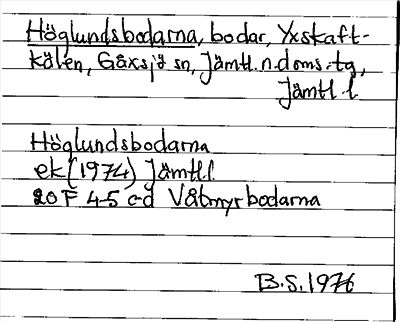 Höglundsbodarna, bodar, Yxskaft-
kälen, Gåxsjö sn, Jämtl. n. doms. tg,
Jämtl. l.
Höglundsbodarna
ek (1974) Jämtl. l.
20 F 4-5 c-d Våtmyrbodarna
B.S. 1976